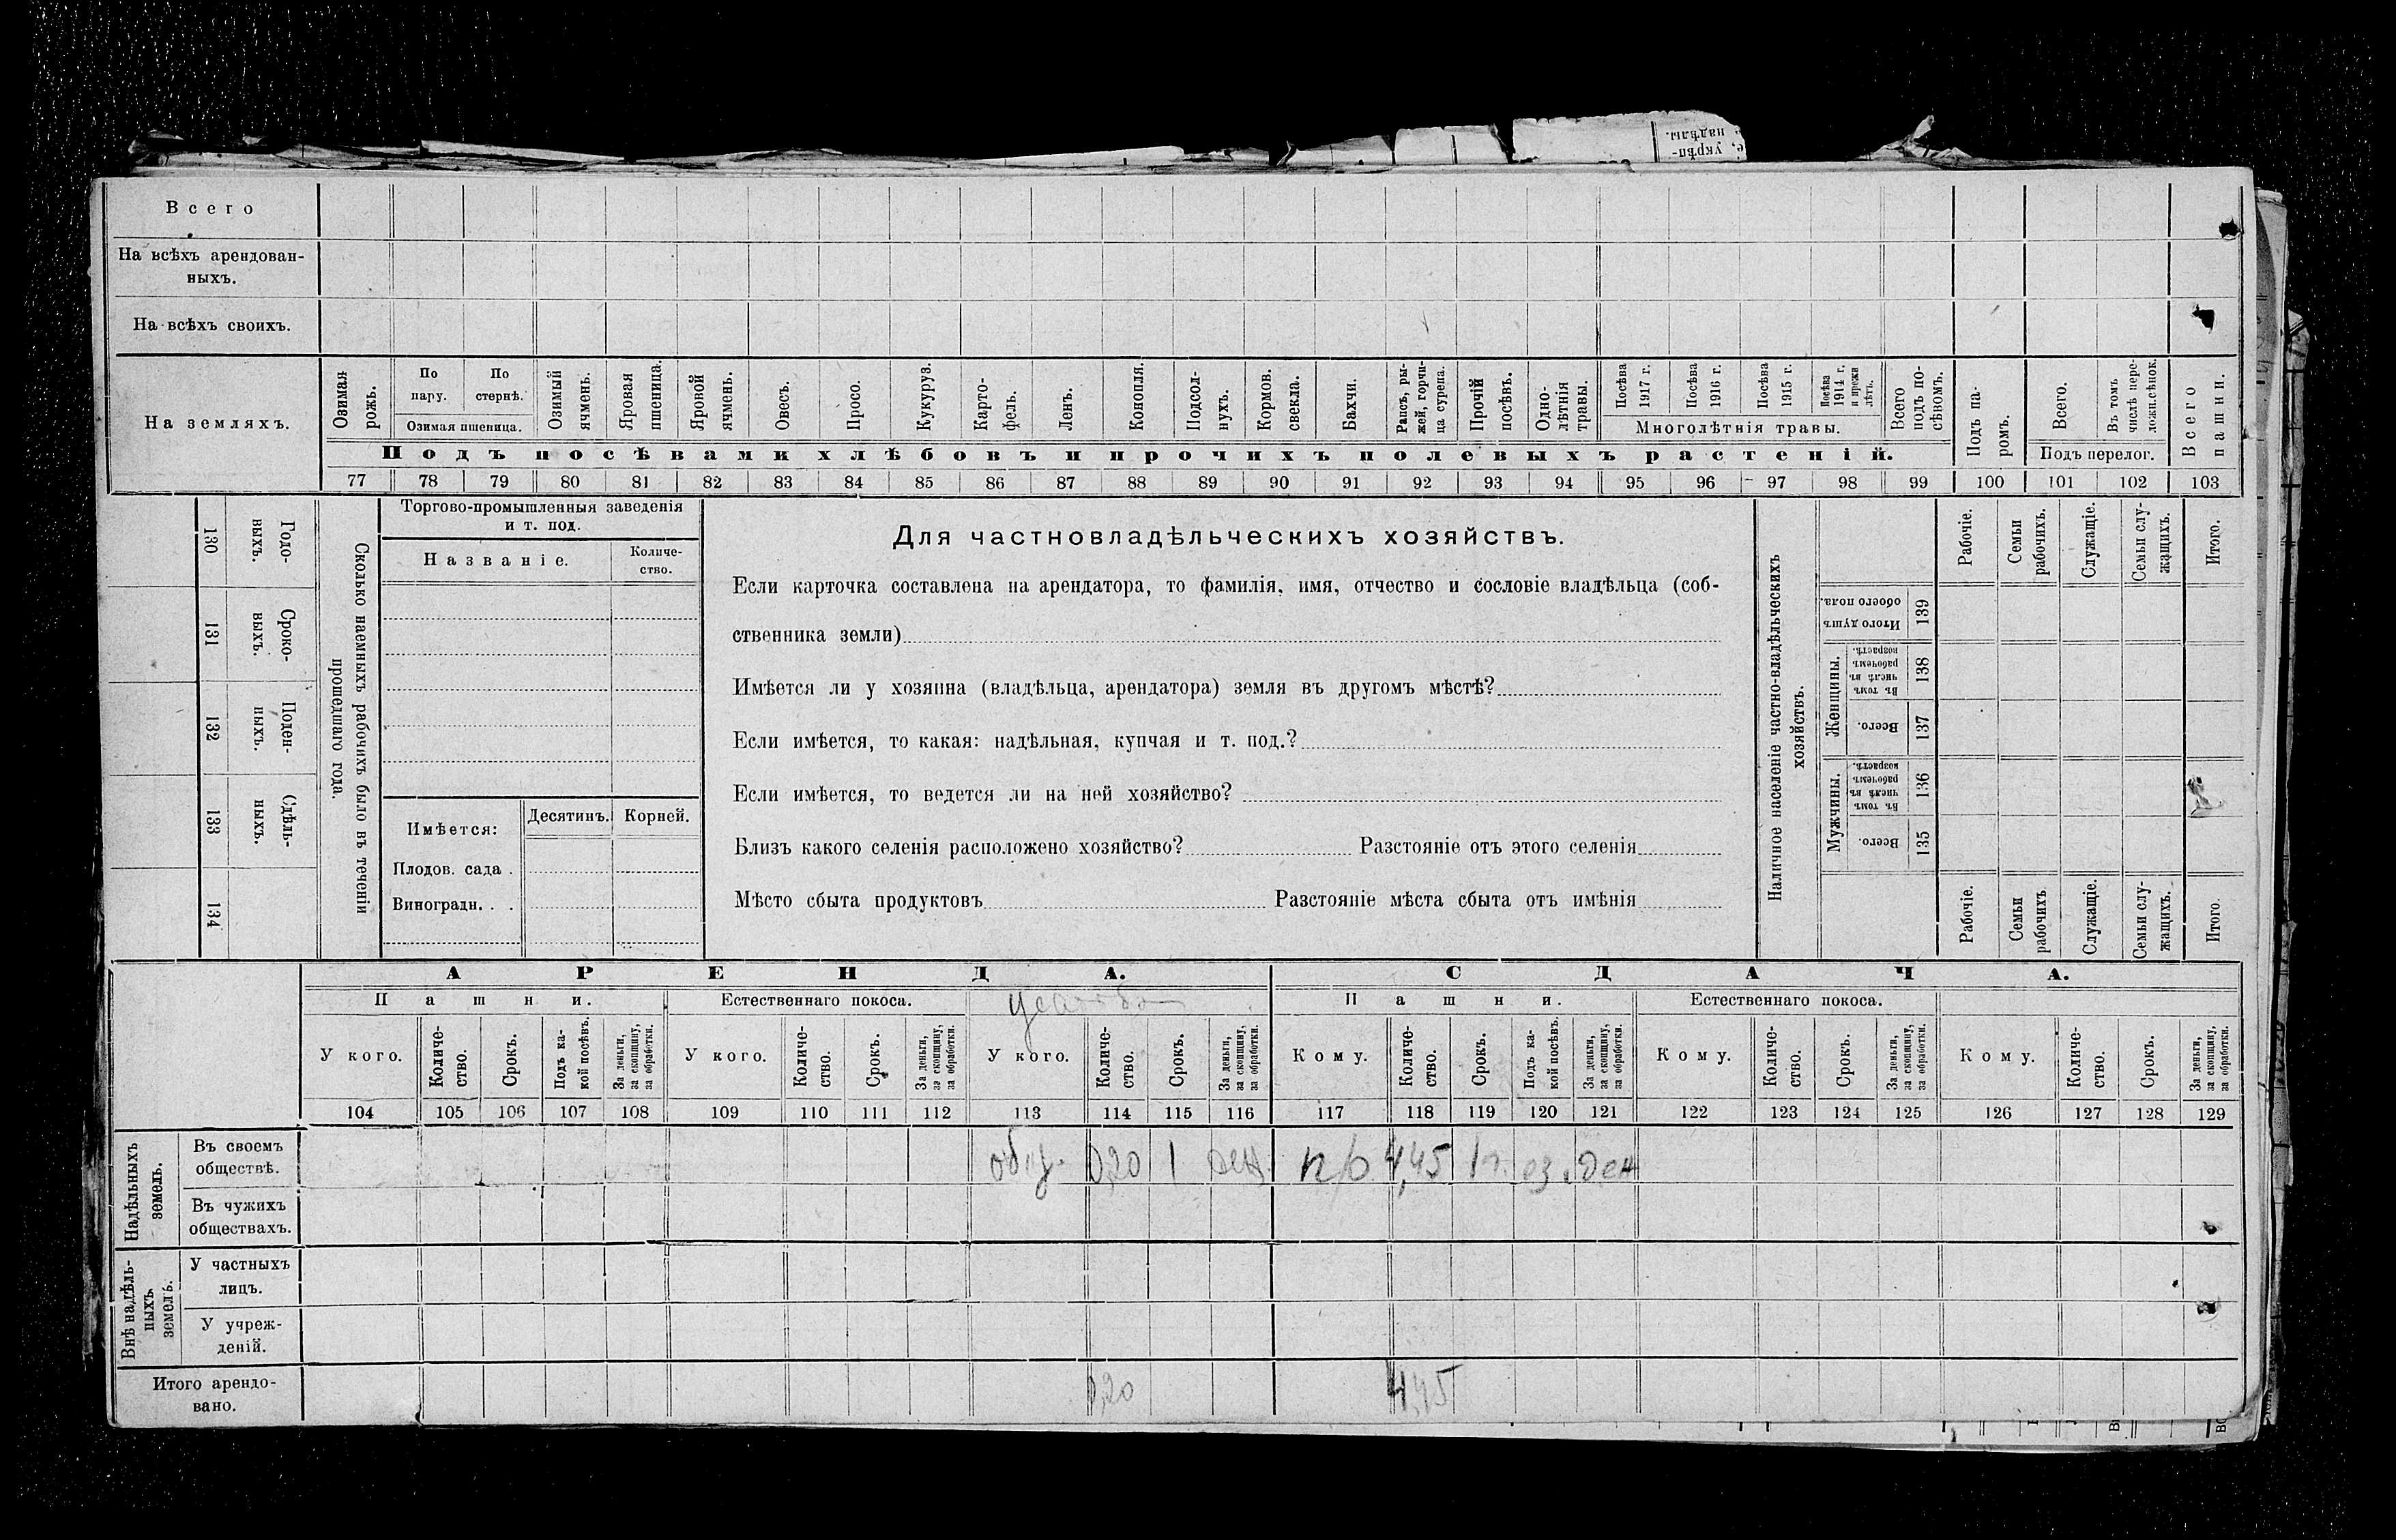 е, укрѣп-
надѣлы.
Всего
На всѣхъ арендован-
ныхъ.
На всѣхъ своихъ.
На земляхъ.
Озимая рожь.
По пару.
По стернѣ.
Озимая пшеница.
Озимый ячмень.
Яровая пшеница.
Яровой ячмень.
Овесъ.
Просо.
Кукуруз.
Карто-
фель.
Ленъ.
Конопля.
Подсол-
нухъ.
Кормов. свекла.
Бахчи.
Рапсъ, ры-
жей, горчи-
ца сурепа.
Прочій посѣвъ.
Одно-
лѣтнія травы.
Посѣва 1917 г.
Посѣва 1916 г.
Посѣва 1915 г.
Посѣва 1914 г. и прежн лѣтъ.
Многолѣтнія травы.
Всего подъ по-
сѣвомъ.
Подъ па-
ромъ.
Всего.
Въ томъ числѣ пере-
ложн.сѣнок.
Подъ перелог.
Всего пашни.
Подъ посѣвами хлѣбовъ и прочихъ полевыхъ растеній.
77 78 79 80 81 82 83 84 85 86 87 88 89 90 91 92 93 94 95 96 97 98 99 100 101 102 103
130 Годо-
выхъ.
131 Сроко-
выхъ.
132 Поден-
ныхъ.
133 Сдѣль-
ныхъ.
134
Сколько наемныхъ рабочихъ было въ теченіи
прошедшаго года.
Торгово-промышленныя заведенія
и т. под.
Названіе.
Количе-
ство.
Имѣется:
Десятин.
Корней.
Плодов. сада .
Виноградн. . .
Для частновладѣльческихъ хозяйствъ.
Если карточка составлена на арендатора, то фамилія, имя, отчество и сословіе владѣльца (соб-
ственника земли)
Имѣется ли у хозяина (владѣльца, арендатора) земля въ другомъ мѣстѣ?
Если имѣется, то какая: надѣльная, купчая и т. под.?
Если имѣется, то ведется ли на ней хозяйство?
Близъ какого селенія расположено хозяйство? Разстояніе отъ этого селенія
Мѣсто сбыта продуктовъ Разстояніе мѣста сбыта отъ имѣнія
Наличное населеніе частно-владѣльческихъ
хозяйствъ.
Рабочіе.
Семьи рабочихъ.
Служащіе.
Семьи слу-
жащихъ.
Итого.
Итого душъ обоего пола.
139
Женщины.
Въ томъ числѣ въ рабочемъ возрастѣ.
138
Всего.
137
Мужчины.
Въ томъ числѣ въ рабочемъ возрастѣ.
136
Всего.
135
Рабочіе.
Семьи рабочихъ
Служащіе.
Семьи слу-
жащихъ.
Итого.
АРЕНДА.
СДАЧА.
Пашни.
Естественнаго покоса.
Пашни.
Естественнаго покоса.
У кого.
Количе-
ство.
Срокъ.
Подъ ка-
кой посѣвъ.
За деньги, за скопщину, за обработки.
У кого.
Количе-
ство.
Срокъ.
За деньги, за скопщину, за обработки.
У кого.
Количе-
ство.
Срокъ.
За деньги, за скопщину, за обработки.
Кому.
Количе-
ство.
Срокъ.
Подъ ка-
кой посѣвъ.
За деньги, за скопщину, за обработки.
Кому.
Количе-
ство.
Срокъ.
За деньги, за скопщину, за обработки.
Кому.
Количе-
ство.
Срокъ.
За деньги, за скопщину, за обработки.
104 105 106 107 108 109 110 111 112 113 114 115 116 117 118 119 120 121 122 123 124 125 126 127 128 129
Надѣльныхъ земель.
Въ своемъ
обществѣ.
0,20 1 ден. 4,45 1 г. оз. ден
Въ чужихъ
обществахъ.
Внѣ надѣль-
ныхъ
земель.
У частныхъ
лицъ.
У учреж-
деній.
Итого арендо-
вано.
0,20 4,45